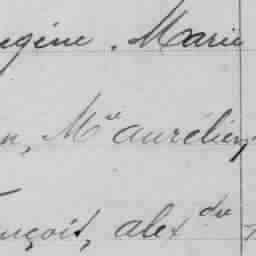 ugéne, Marie
n, Mie aurélien
nçois, alexdre